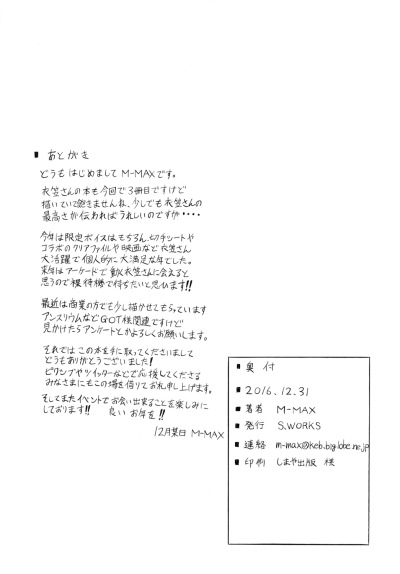 ■ あとがき
どうも はじめまして M-MAXです。
衣笠さんの本も今回で3冊目ですけど
描いていて飽きませんね、少しでも衣笠さんの
最高さが伝わればうれしいのですが・・・・
今年は限定ボイスはもちろん、切手シートや
コラボのクリアファイルや映画など衣笠さん
大活躍で個人的に大満足な年でした。
来年はアーケードで動く衣笠さんに会えると
思うので裸待機で待ちたいと思います!!
最近は商業の方でも少し描かせてもらっています
アンスリウムなどGOT様関連ですけど
見かけたらアンケートとかよろしくお願いします。
それでは この本を手に取ってくださいまして
どうもありがとうございました!
ピクシブやツイッターなどで応援してくださる
みなさまにもこの場を借りてお礼申し上げます。
そしてまたイベントでお会い出来ることを楽しみに
しております!! 良い お年を!!
12月某日 M-MAX
■ 奥 付
■ 2016.12.31
■ 著者 M-MAX
■ 発行 S.WORKS
■ 連絡 m-max@kcb.biglobe.ne.jp
■ 印刷 しまや出版 様